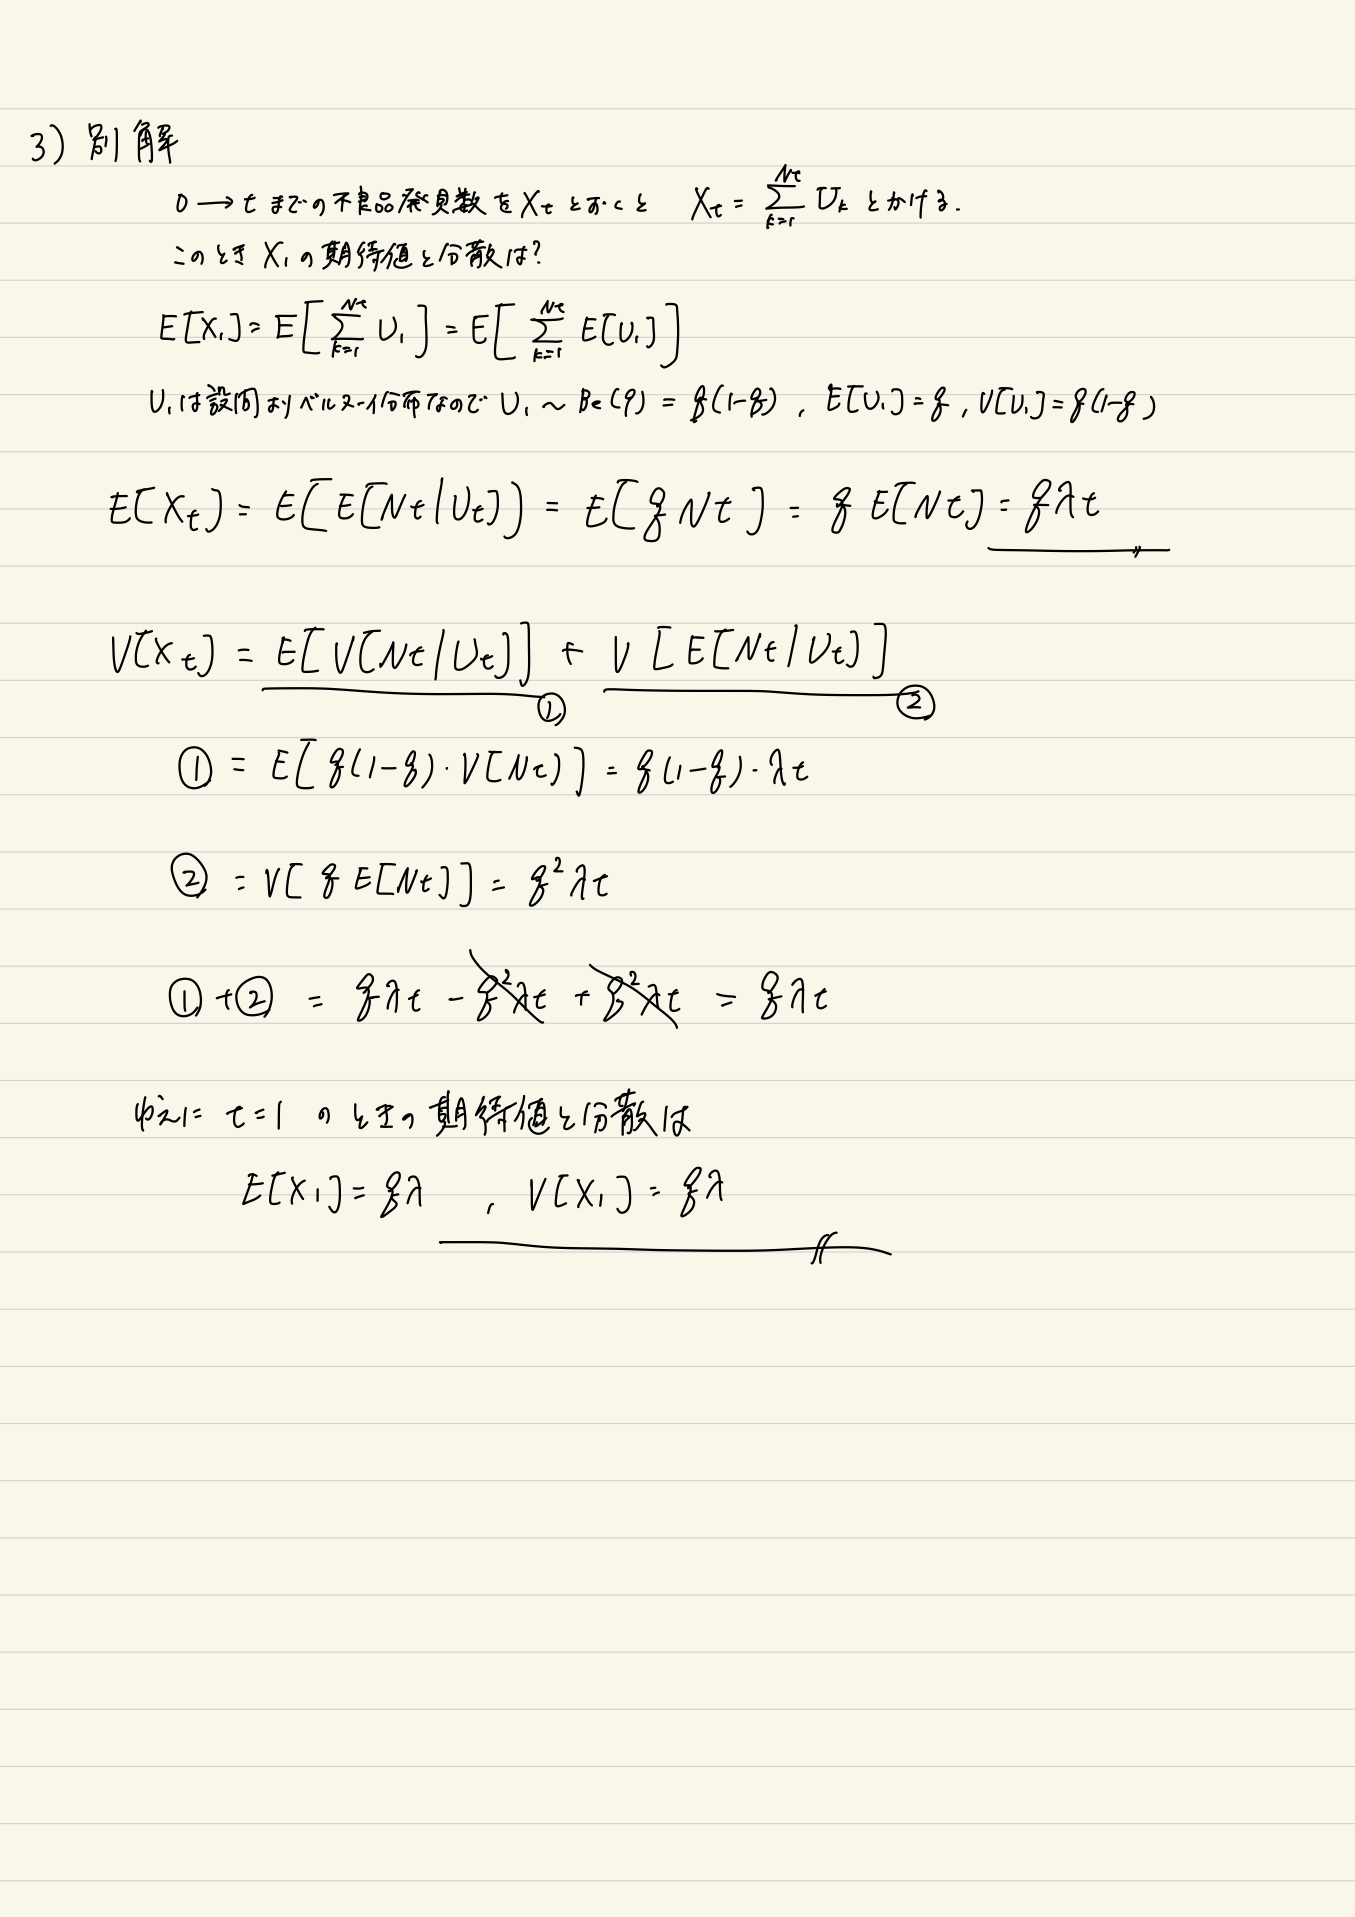 3) 別解
0 → t までの不良品発見数を Xt とおくと Xt = Σ_{k=1}^{Nt} Uk とかける.
このとき X₁ の期待値と分散は?
E[X₁] = E[Σ_{k=1}^{Nt} U₁] = E[Σ_{k=1}^{Nt} E[U₁]]
U₁は設問よりベルヌーイ分布なので U₁ ~ Be(q) = q(1-q) , E[U₁] = q , V[U₁] = q(1-q)
E[Xt] = E[E[Nt|Ut]] = E[q Nt] = q E[Nt] = qλt
V[Xt] = E[V[Nt|Ut]] + V[E[Nt|Ut]]
① ②
① = E[q(1-q)・V[Nt]] = q(1-q)・λt
② = V[q E[Nt]] = q²λt
①+② = qλt - q²λt + q²λt = qλt
ゆえに t=1 のときの期待値と分散は
E[X₁] = qλ , V[X₁] = qλ